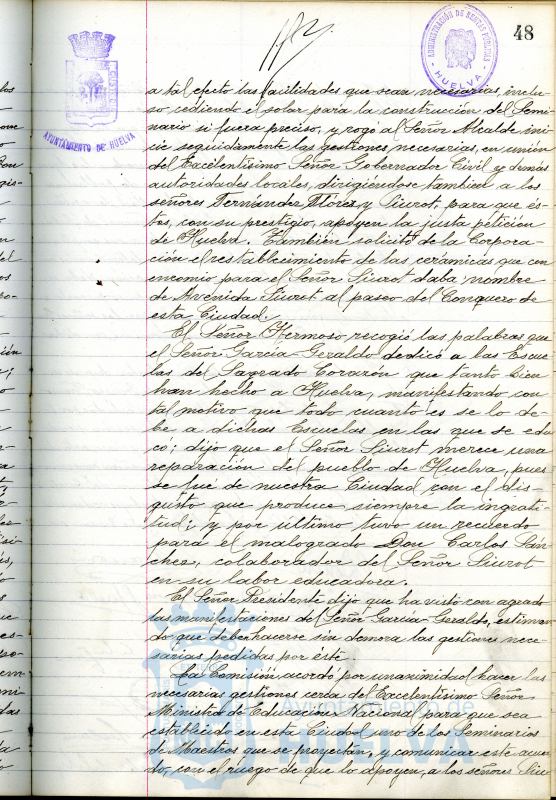 48
ADMINISTRACIÓN DE RENTAS PÚBLICAS
HUELVA
AYUNTAMIENTO DE HUELVA
a tal efecto las facilidades que sean necesarias, inclu-
so cediendo el solar para la construcción del Semi-
nario si fuera preciso, y rogo al Señor Alcalde ini-
cie seguidamente las gestiones necesarias, en unión
del Excelentísimo Señor Gobernador Civil y demás
autoridades locales, dirigiendose tambien a los
señores Fernández Flórez y Siurot, para que és-
tos, con su prestigio, apoyen la justa petición
de Huelva. También solicitó de la Corpora-
ción el restablecimiento de las cerámicas que con
encomio para el Señor Siurot daba nombre
de Avenida Siurot al paseo del Conquero de
esta Ciudad.
El Señor Hermoso recogió las palabras que
el Señor García-Geraldo dedicó a las Escue
las del Sagrado Corazón que tanto bien
han hecho a Huelva, manifestando con
tal motivo que todo cuanto es se lo de-
be a dichas Escuelas en las que se edu
có; dijo que el Señor Siurot merece una
reparación del pueblo de Huelva, pues
se fué de nuestra Ciudad con el dis-
gusto que produce siempre la ingrati-
tud; y por último tuvo un recuerdo
para el malogrado Don Carlos Sán-
chez, colaborador del Señor Siurot
en su labor educadora.
El Señor Presidente dijo que ha visto con agrado
las manifestaciones del Señor García-Geraldo, estiman-
do que deben hacerse sin demora las gestiones nece-
sarias pedidas por éste.
La Comisión acordó por unanimidad hacer las
necesarias gestiones cerca del Excelentísimo Señor
Ministro de Educación Nacional para que sea
establecido en esta Ciudad uno de los Seminarios
de Maestros que se proyectan, y comunicar este acuer
do, con el ruego de que lo apoyen, a los señores Siu
Ayuntamiento de
HUELVA